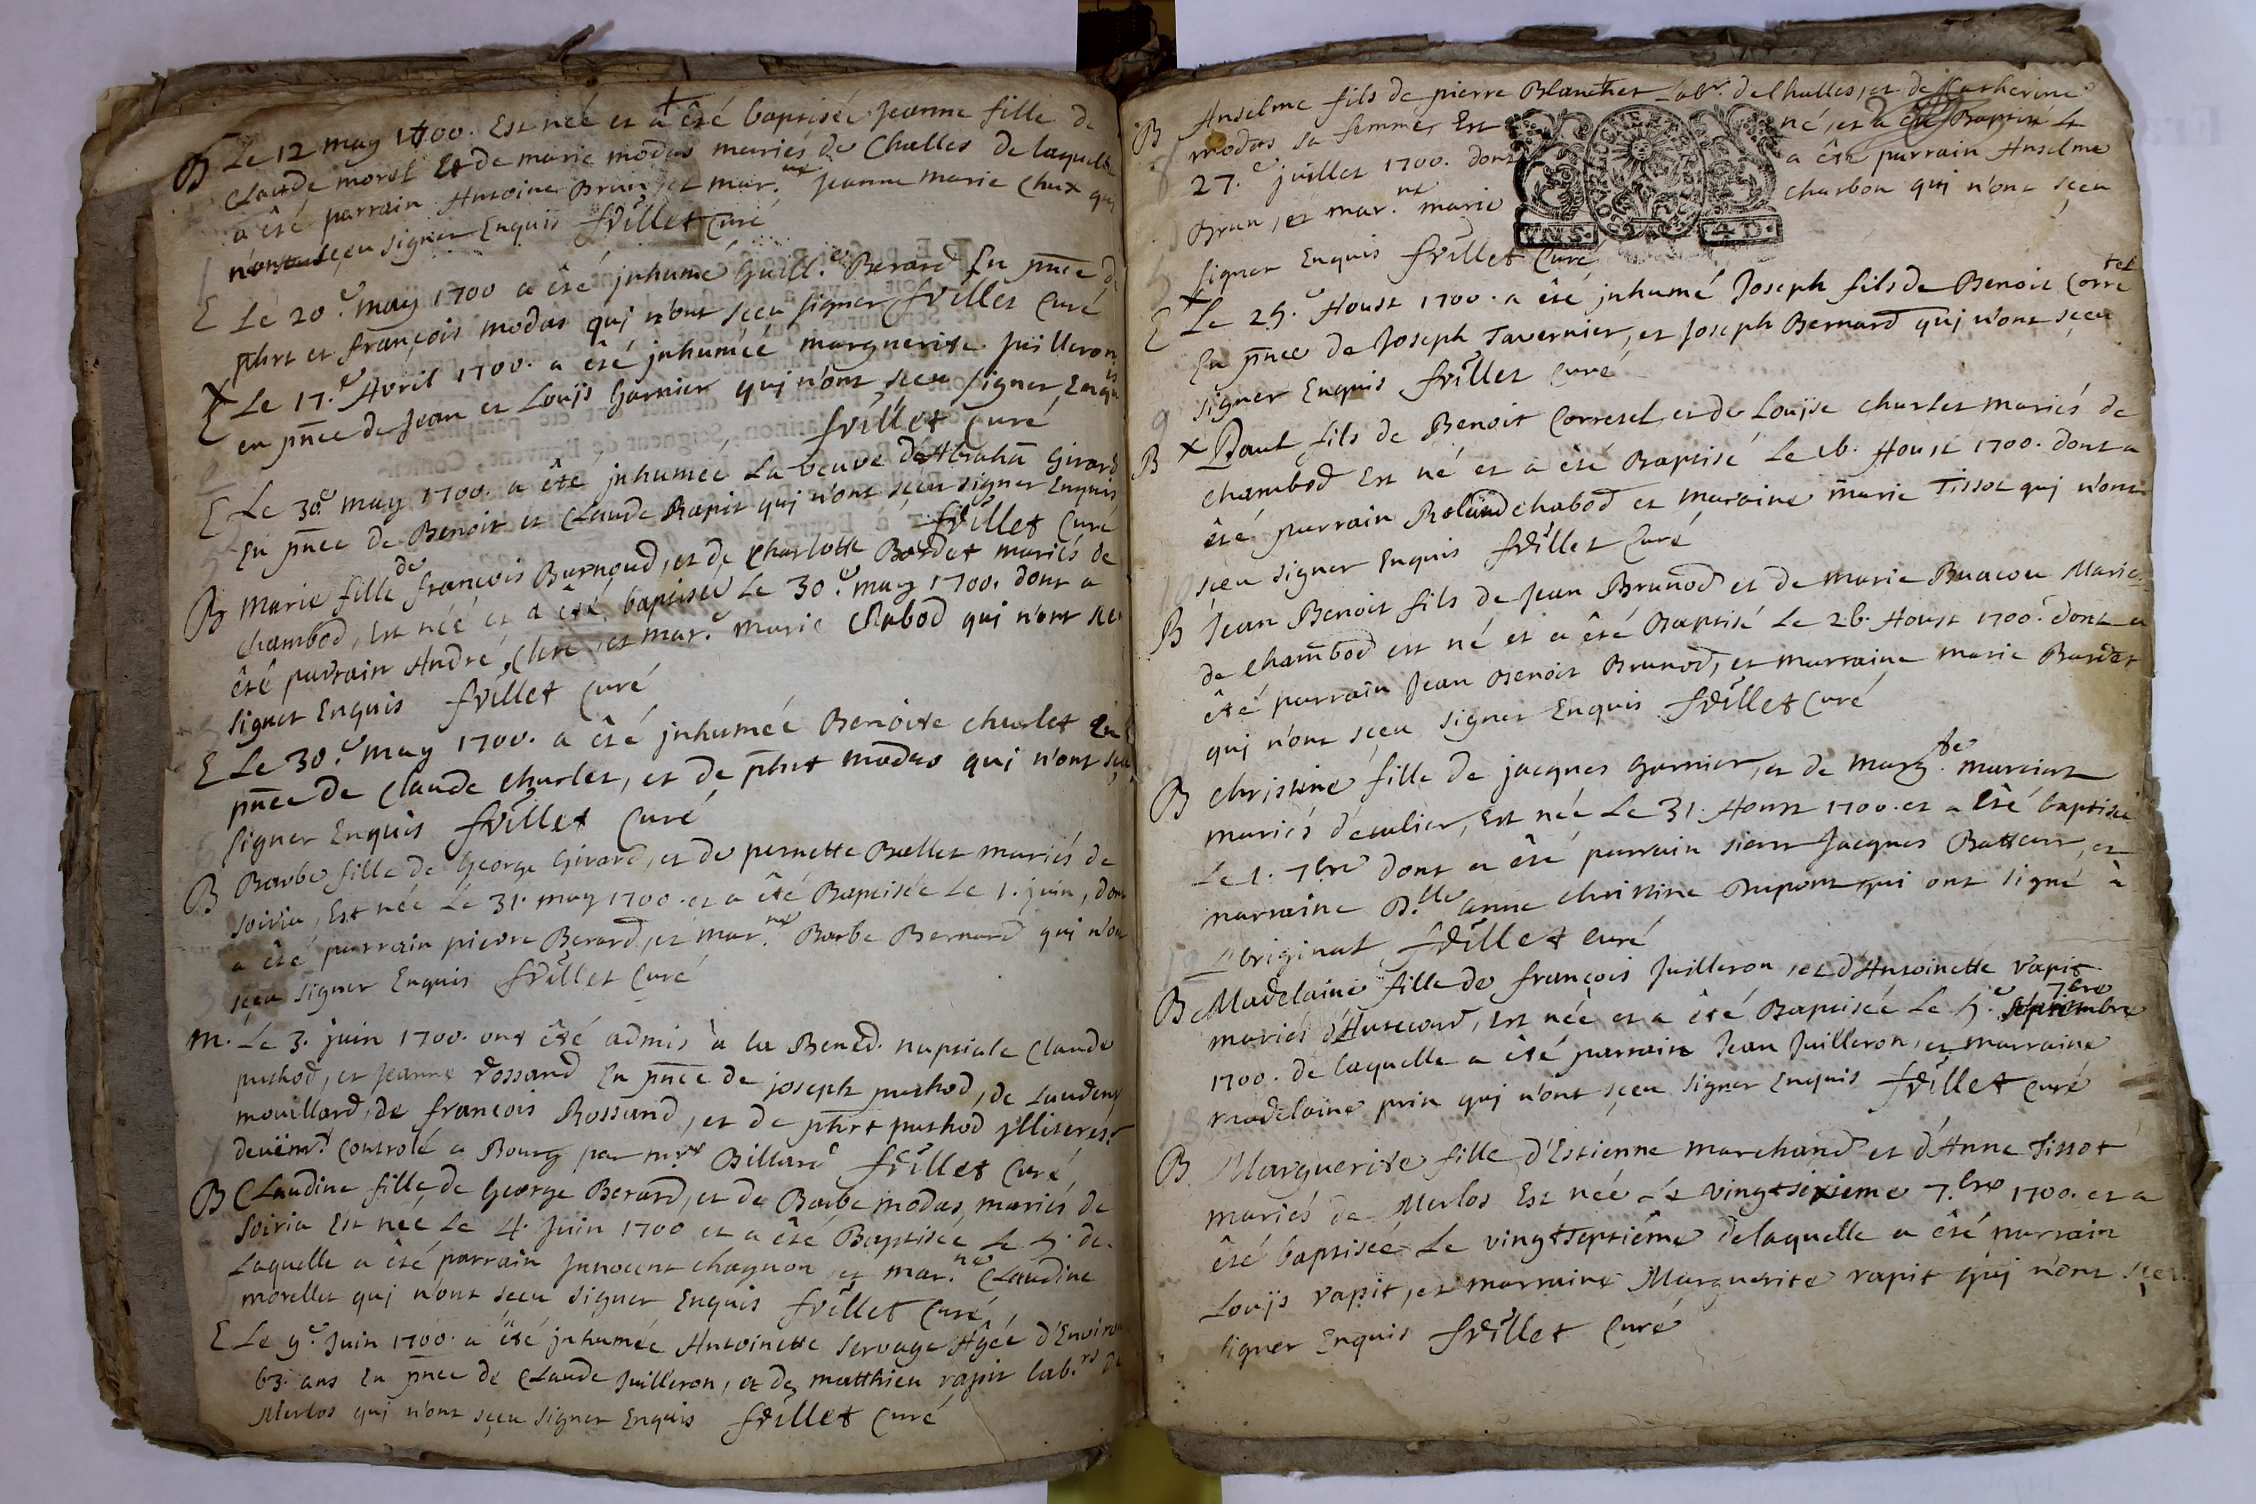 B Le 12 may 1700. Est neé et a êté baptisée Jeanne fille de
Claude morel et de marie modas mariés de Challes de laquelle
a êté parrain Antoine Brun et mar.ne Jeanne marie Chux qui
n'ont sçeu signer Enquis frillet Curé
E Le 20.e may 1700 a êté jnhumé Guill.e Berard En pñce de
phrt et françois modas quj n'ont sçeu signer frillet Curé
E Le 17.e Avril 1700. a êté jnhumeé marguerite Juilleron
en pñce de Jean et Louÿs Garnier quj n'ont sçeu signer Enquis
frillet Curé
E Le 30.e may 1700. a êté jnhumeé La veuve d'Abrahã Girard
En pñce de Benoit et Claude Rapit quj n'ont sçeu signer Enquis
frillet Curé
B Marie fille de françois Burnoud, et de Charlotte Bardet mariés de
chambod, Est neé et a êté baptiseé Le 30.e may 1700. dont a
êté parrain André Clere, et mar.e marie Chabod qui n'ont sçeu
signer Enquis frillet Curé
E Le 30.e may 1700. a êté jnhumeé Benoite charlet En
pñce de Claude charlet, et de phrt modas qui n'ont sçeu
signer Enquis frillet Curé
B Barbe fille de George Girard, et de pernette Bellet mariés de
soiria, Est neé Le 31. may 1700. et a êté Baptiseé Le 1. juin, dont
a êté parrain pierre Berard, et mar.ne Barbe Bernard qui n'ont
sçeu signer Enquis frillet Curé
m. Le 3. juin 1700. ont êté admis à la Bened. nuptiale Claude
puthod, et Jeanne Rossand En pñce de joseph puthod, de Laudens
mouillard, de françois Rossand, et de phrt puthod jlliteres.
deüem.t Controlé a Bourg par m.re Billard frillet Curé
B Claudine fille de George Berard, et de Barbe modas, mariés de
Soiria Est neé Le 4. Juin 1700 et a êté Baptiseé Le 5. de
Laquelle a êté parrain Jnnocent chagnon et mar.ne Claudine
morellet quj n'ont sçeu signer Enquis frillet Curé
E Le 9.e Juin 1700. a êté jnhumée Antoinette servage Ageé d'Environ
63. ans En pñce de Claude Juilleron, et de matthieu rapit lab.rs de
Merlos qui n'ont sçeu signer Enquis frillet Curé
B Anselme fils de pierre Blanchet Lab.r de Challes, et de Catherine
modas sa femme, Est né, et a êté Baptisé Le
27.e juillet 1700. dont a êté parrain Anselme
Brun, et mar.ne marie charbon quj n'ont sçeu
VNS. 4D.
signer Enquis frillet Curé
E Le 25.e Aoust 1700. a êté jnhumé Joseph fils de Benoit Corretel
En pñce de Joseph Tavernier, et Joseph Bernard quj n'ont sçeu
signer Enquis frillet Curé
B Paul fils de Benoit Corretel, et de Louÿse charlet mariés de
chambod Est né et a êté Baptisé Le 26. Aoust 1700. dont a
êté parrain Roland chabod et maraine marie Tissot quj n'ont
sçeu signer Enquis frillet Curé
B Jean Benoit fils de Jean Brunod et de marie Buacou Mariés
de chambod est né et a êté Baptisé Le 26. Aoust 1700. dont a
êté parrain Jean Benoit Brunod, et marraine marie Bardet
quj n'ont sçeu signer Enquis frillet Curé
B Christine fille de jacques Garnier, et de marg.te marcient
mariés d'eculier, Est neé Le 31. Aoust 1700. et a êté baptiseé
Le 1. 7bre dont a êté parrain sieur Jacques Batteur, et
marraine D.lle anne christine Dupont quj ont signé à
L'original frillet curé
B Madelaine fille de françois Juilleron, et d'Antoinette rapit
mariés d'Antecour, Est neé et a êté Baptiseé Le 5.e 7bre
1700. de laquelle a êté parrain Jean Juilleron, et marraine
madelaine prin quj n'ont sçeu signer Enquis frillet curé
B Marguerite fille d'Estienne marchand et d'Anne Tissot
mariés de Merlos Est neé Le vingtsixieme 7.bre 1700. et a
êté baptiseé Le vingtseptiême delaquelle a êté parrain
Louÿs rapit, et marraine Marguerite rapit quj n'ont sçeu
signer Enquis frillet Curé